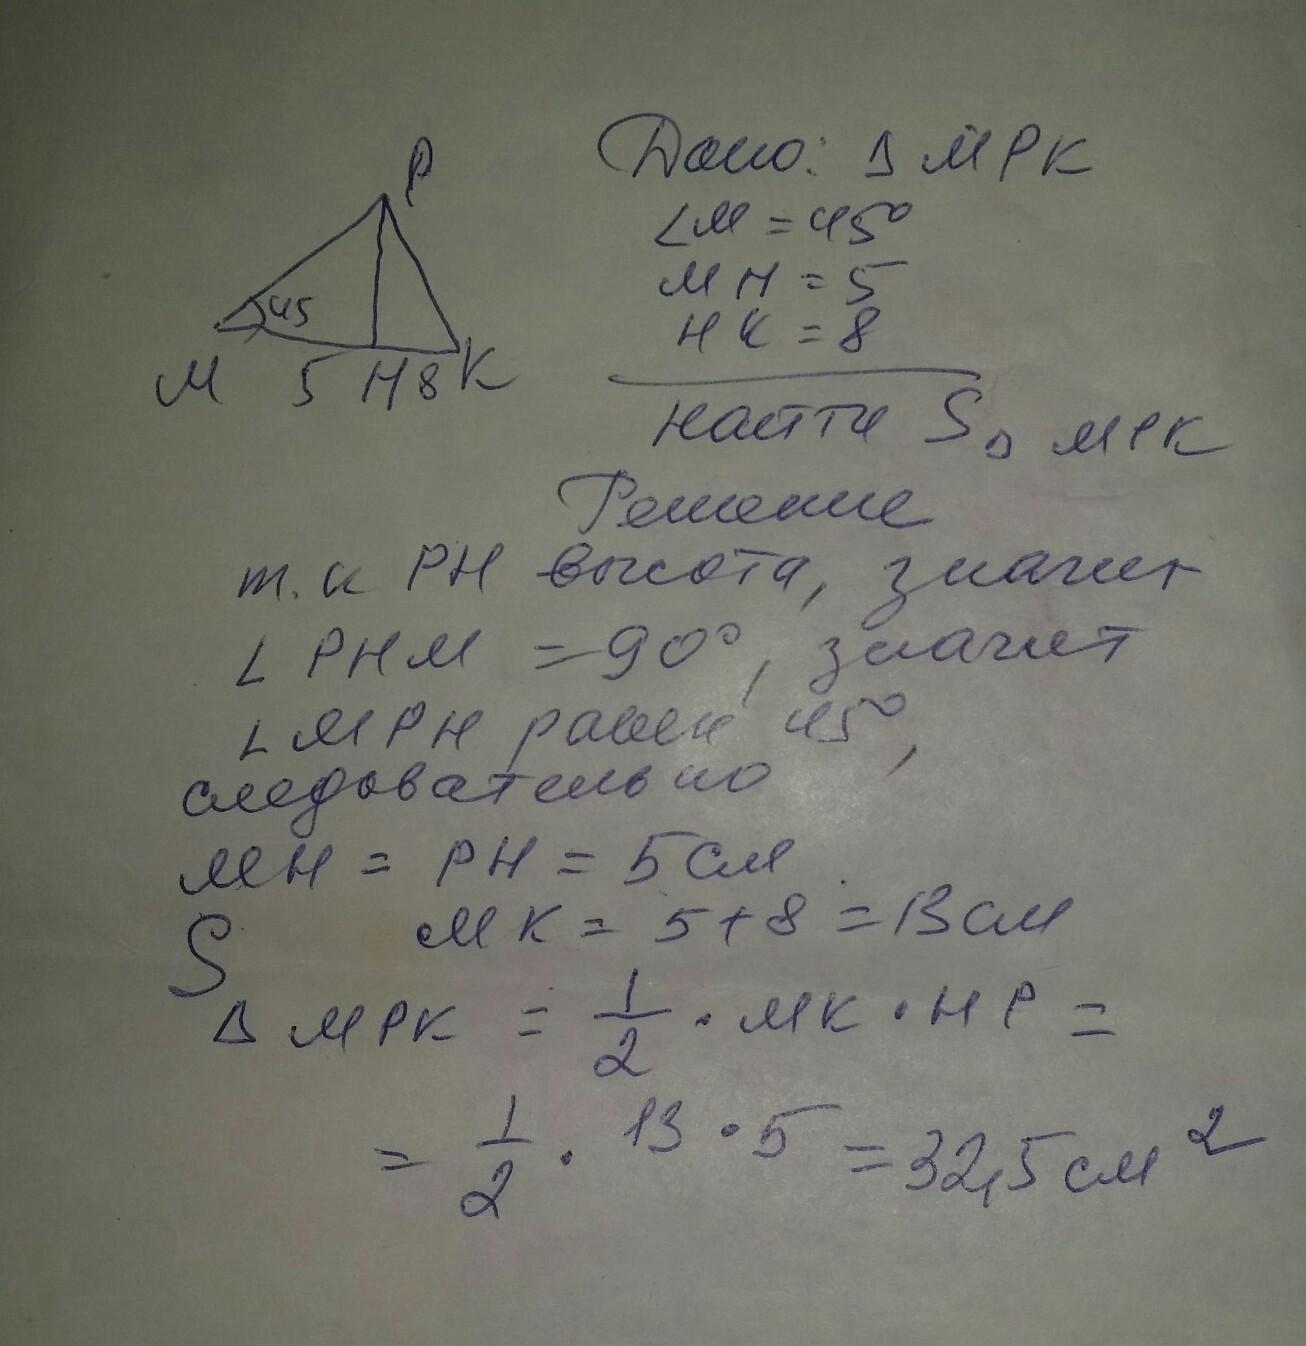 P
45
M 5 H 8 K
Дано: Δ MPK
∠M = 45°
MH = 5
HK = 8
Найти S Δ MPK
Решение
т.к PH высота, значит
∠ PHM = 90°, значит
∠ MPH равен 45°,
следовательно
MH = PH = 5 см
MK = 5 + 8 = 13 см
S Δ MPK = 1/2 · MK · HP =
= 1/2 · 13 · 5 = 32,5 см²